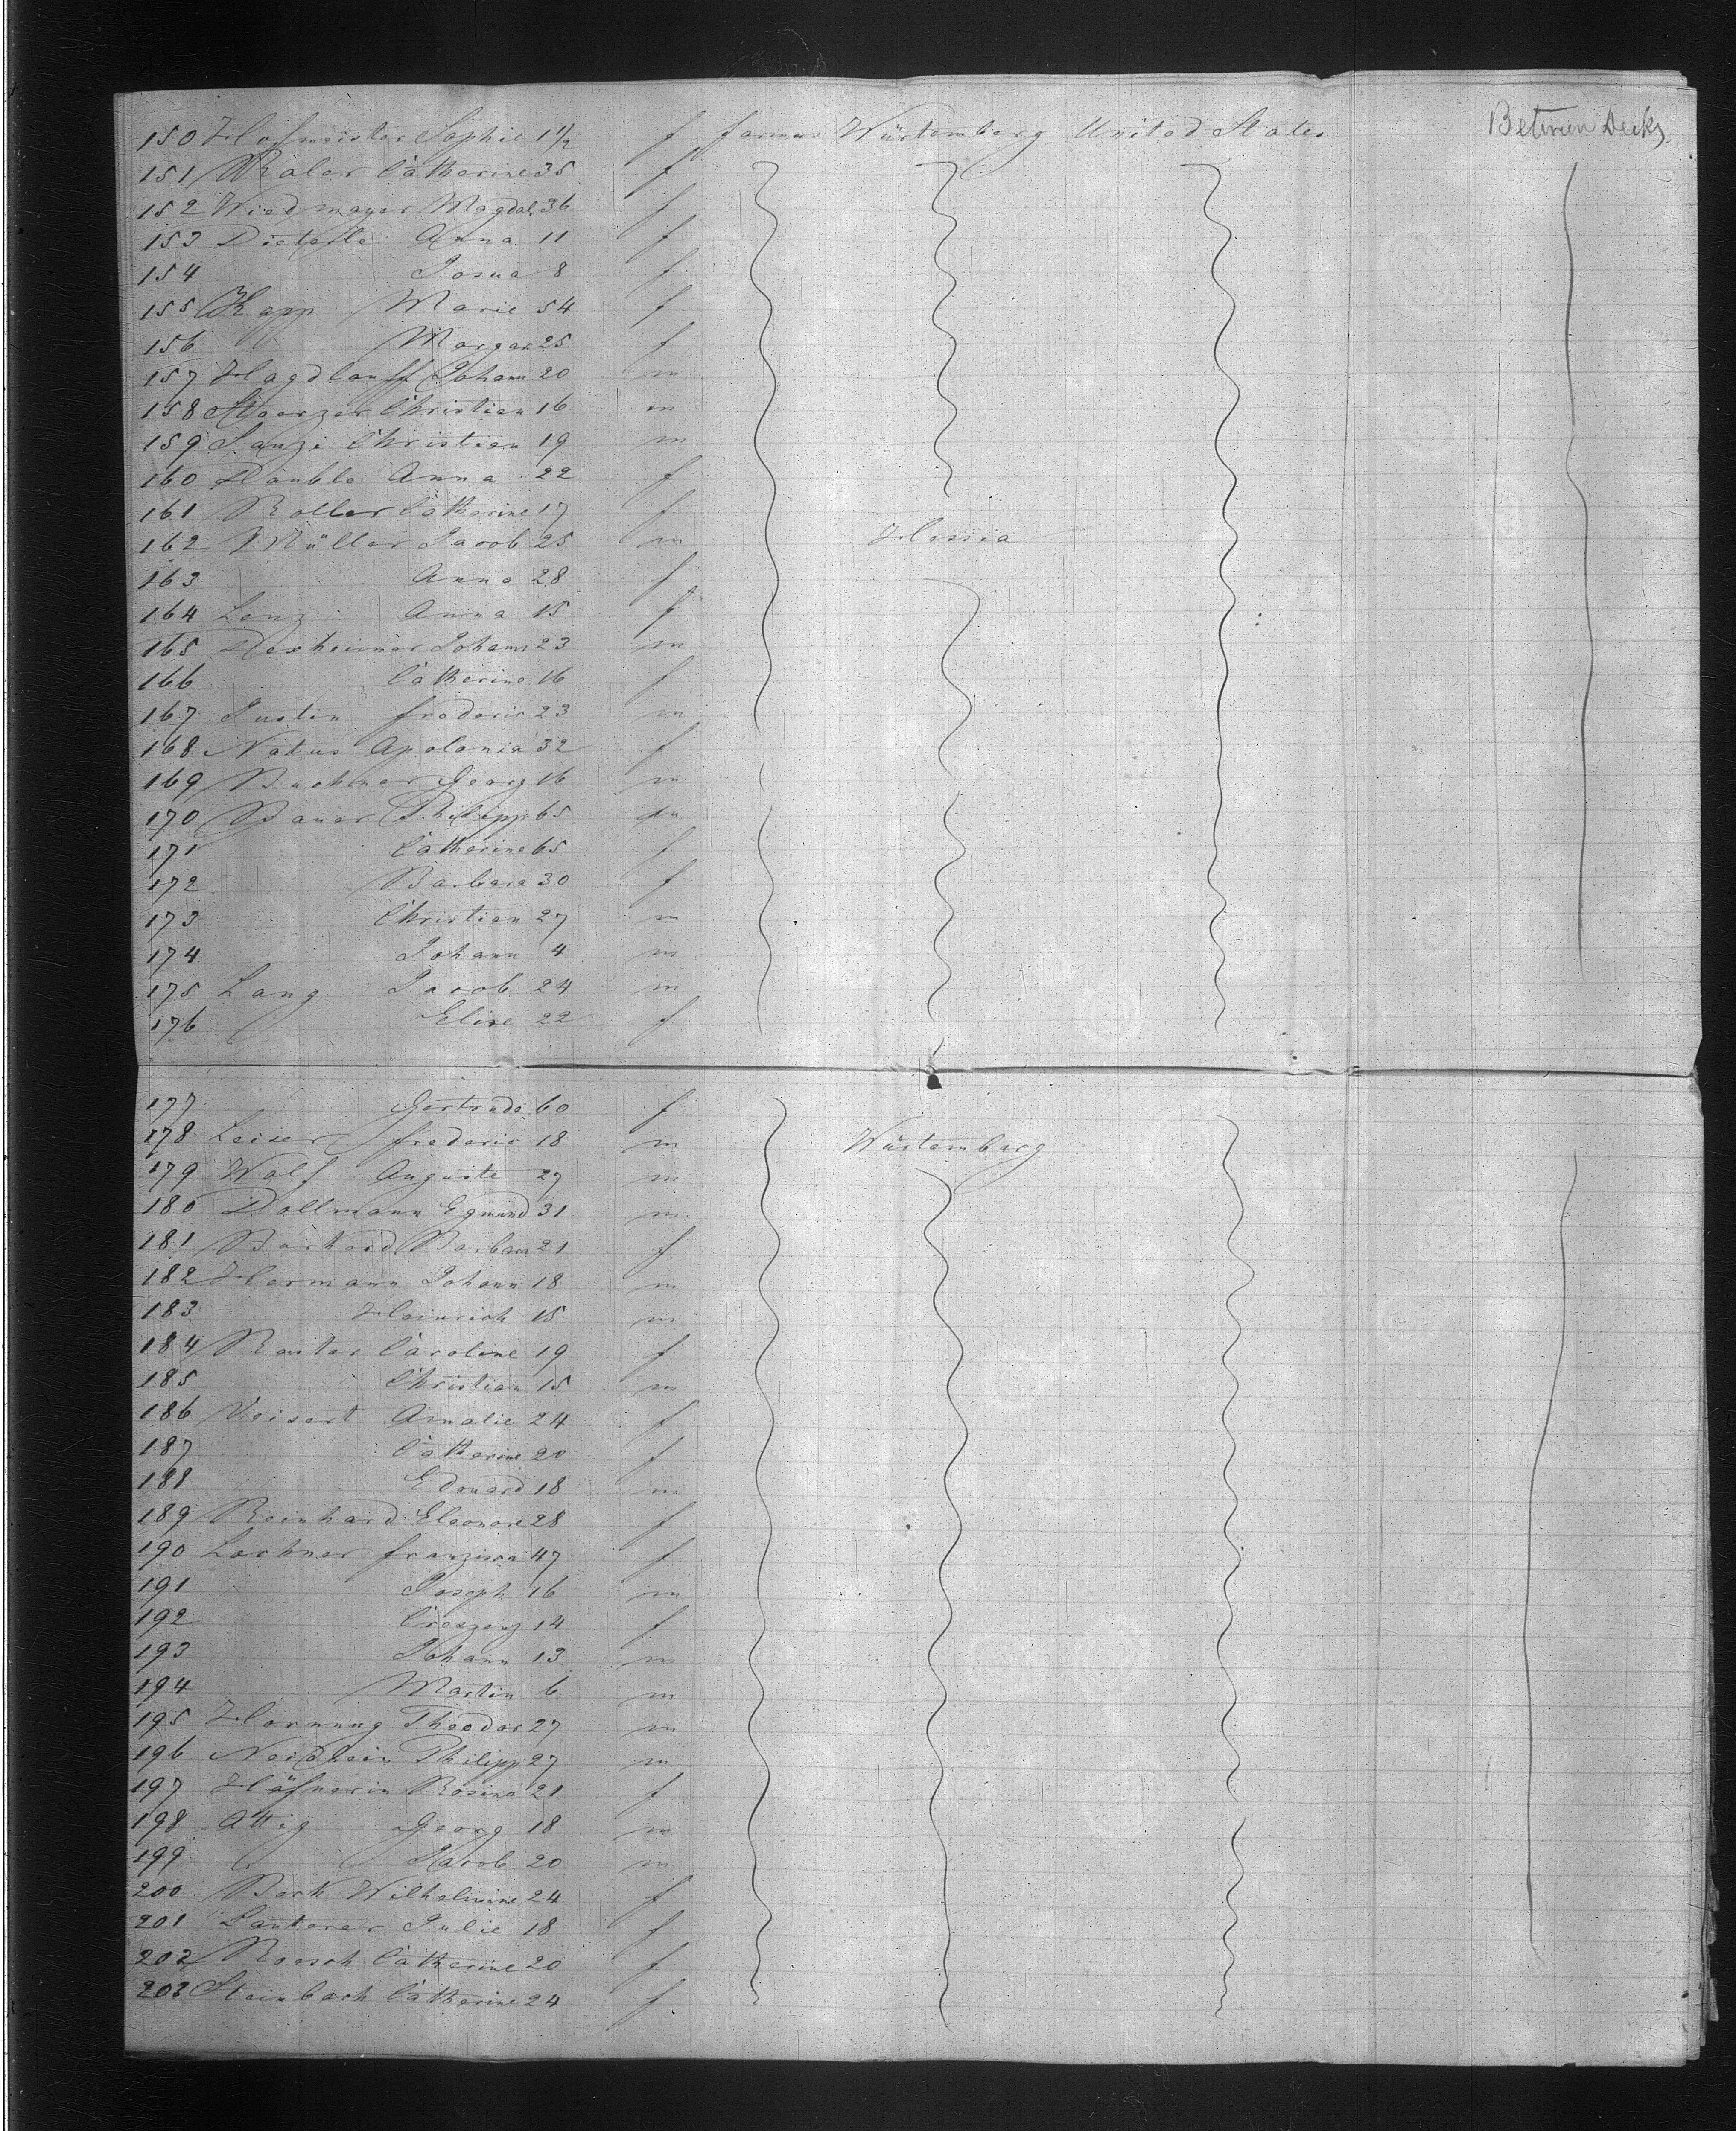 150 Hofmeister Sophie 1 1/2 f farmer Würtemberg United States Between Decks
151 Maler Catherine 35 f
152 Wiedmayer Magdal. 36 f
153 Dieterle Anna 11 f
154 Josua 8 f
155 Kapp Marie 54 f
156 Margar. 25 f
157 Hagdlauff Johann 20 m
158 Stoerzer Christian 16 m
159 Christian 19 m
160 Däuble Anna 22 f
161 Roller Catherine 17 f
162 Müller Jacob 25 m Hessia
163 Anna 28 f
164 Lenz Anna 15 f
165 Dexheimer Johann 23 m
166 Catherine 16 f
167 Justin frederic 23 m
168 Natus Apolonia 32 f
169 Buchner Georg 16 m
170 Bauer Philipp 65 m
171 Catherine 65 f
172 Barbara 30 f
173 Christian 27 m
174 Johann 4 m
175 Lang Jacob 24 m
176 Elise 22 f
177 Gertrude 60 f
178 Leiser frederic 18 m Würtemberg
179 Wolf Auguste 27 m
180 Dollmann Egmund 31 m
181 Barbara 21 f
182 Hermann Johann 18 m
183 Heinrich 15 m
184 Reuter Caroline 19 f
185 Christian 15 m
186 Amalie 24 f
187 Catherine 20 f
188 Edouard 18 m
189 Reinhard Eleonore 28 f
190 Lechner franzisca 47 f
191 Joseph 16 m
192 Creszenz 14 f
193 Johann 13 m
194 Martin 6 m
195 Hornung Theodor 27 m
196 Neidlein Philipp 27 m
197 Häfnerin Rosine 21 f
198 Attig Georg 18 m
199 Jacob 20 m
200 Beck Wilhelmine 24 f
201 Lauterer Julie 18 f
202 Roesch Catherine 20 f
203 Steinbach Catherine 24 f